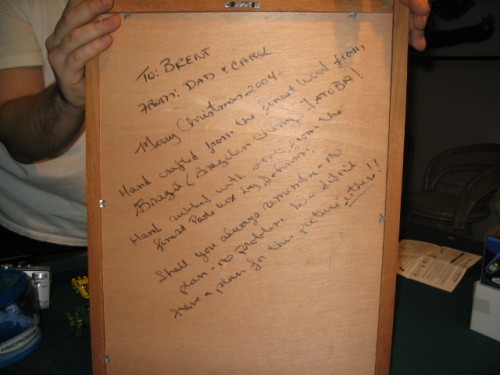 To: BRENT
FROM: DAD + CAROL
Merry Christmas 2004.
Hand crafted from the finest wood from,
Brazil (Brazilian Cherry - JATOBA)!
Hand rubbed with from the
finest Paste wax by Johnson.
Shall you always remember - no
plan - no problem how didn't
have a plan for this picture either!!